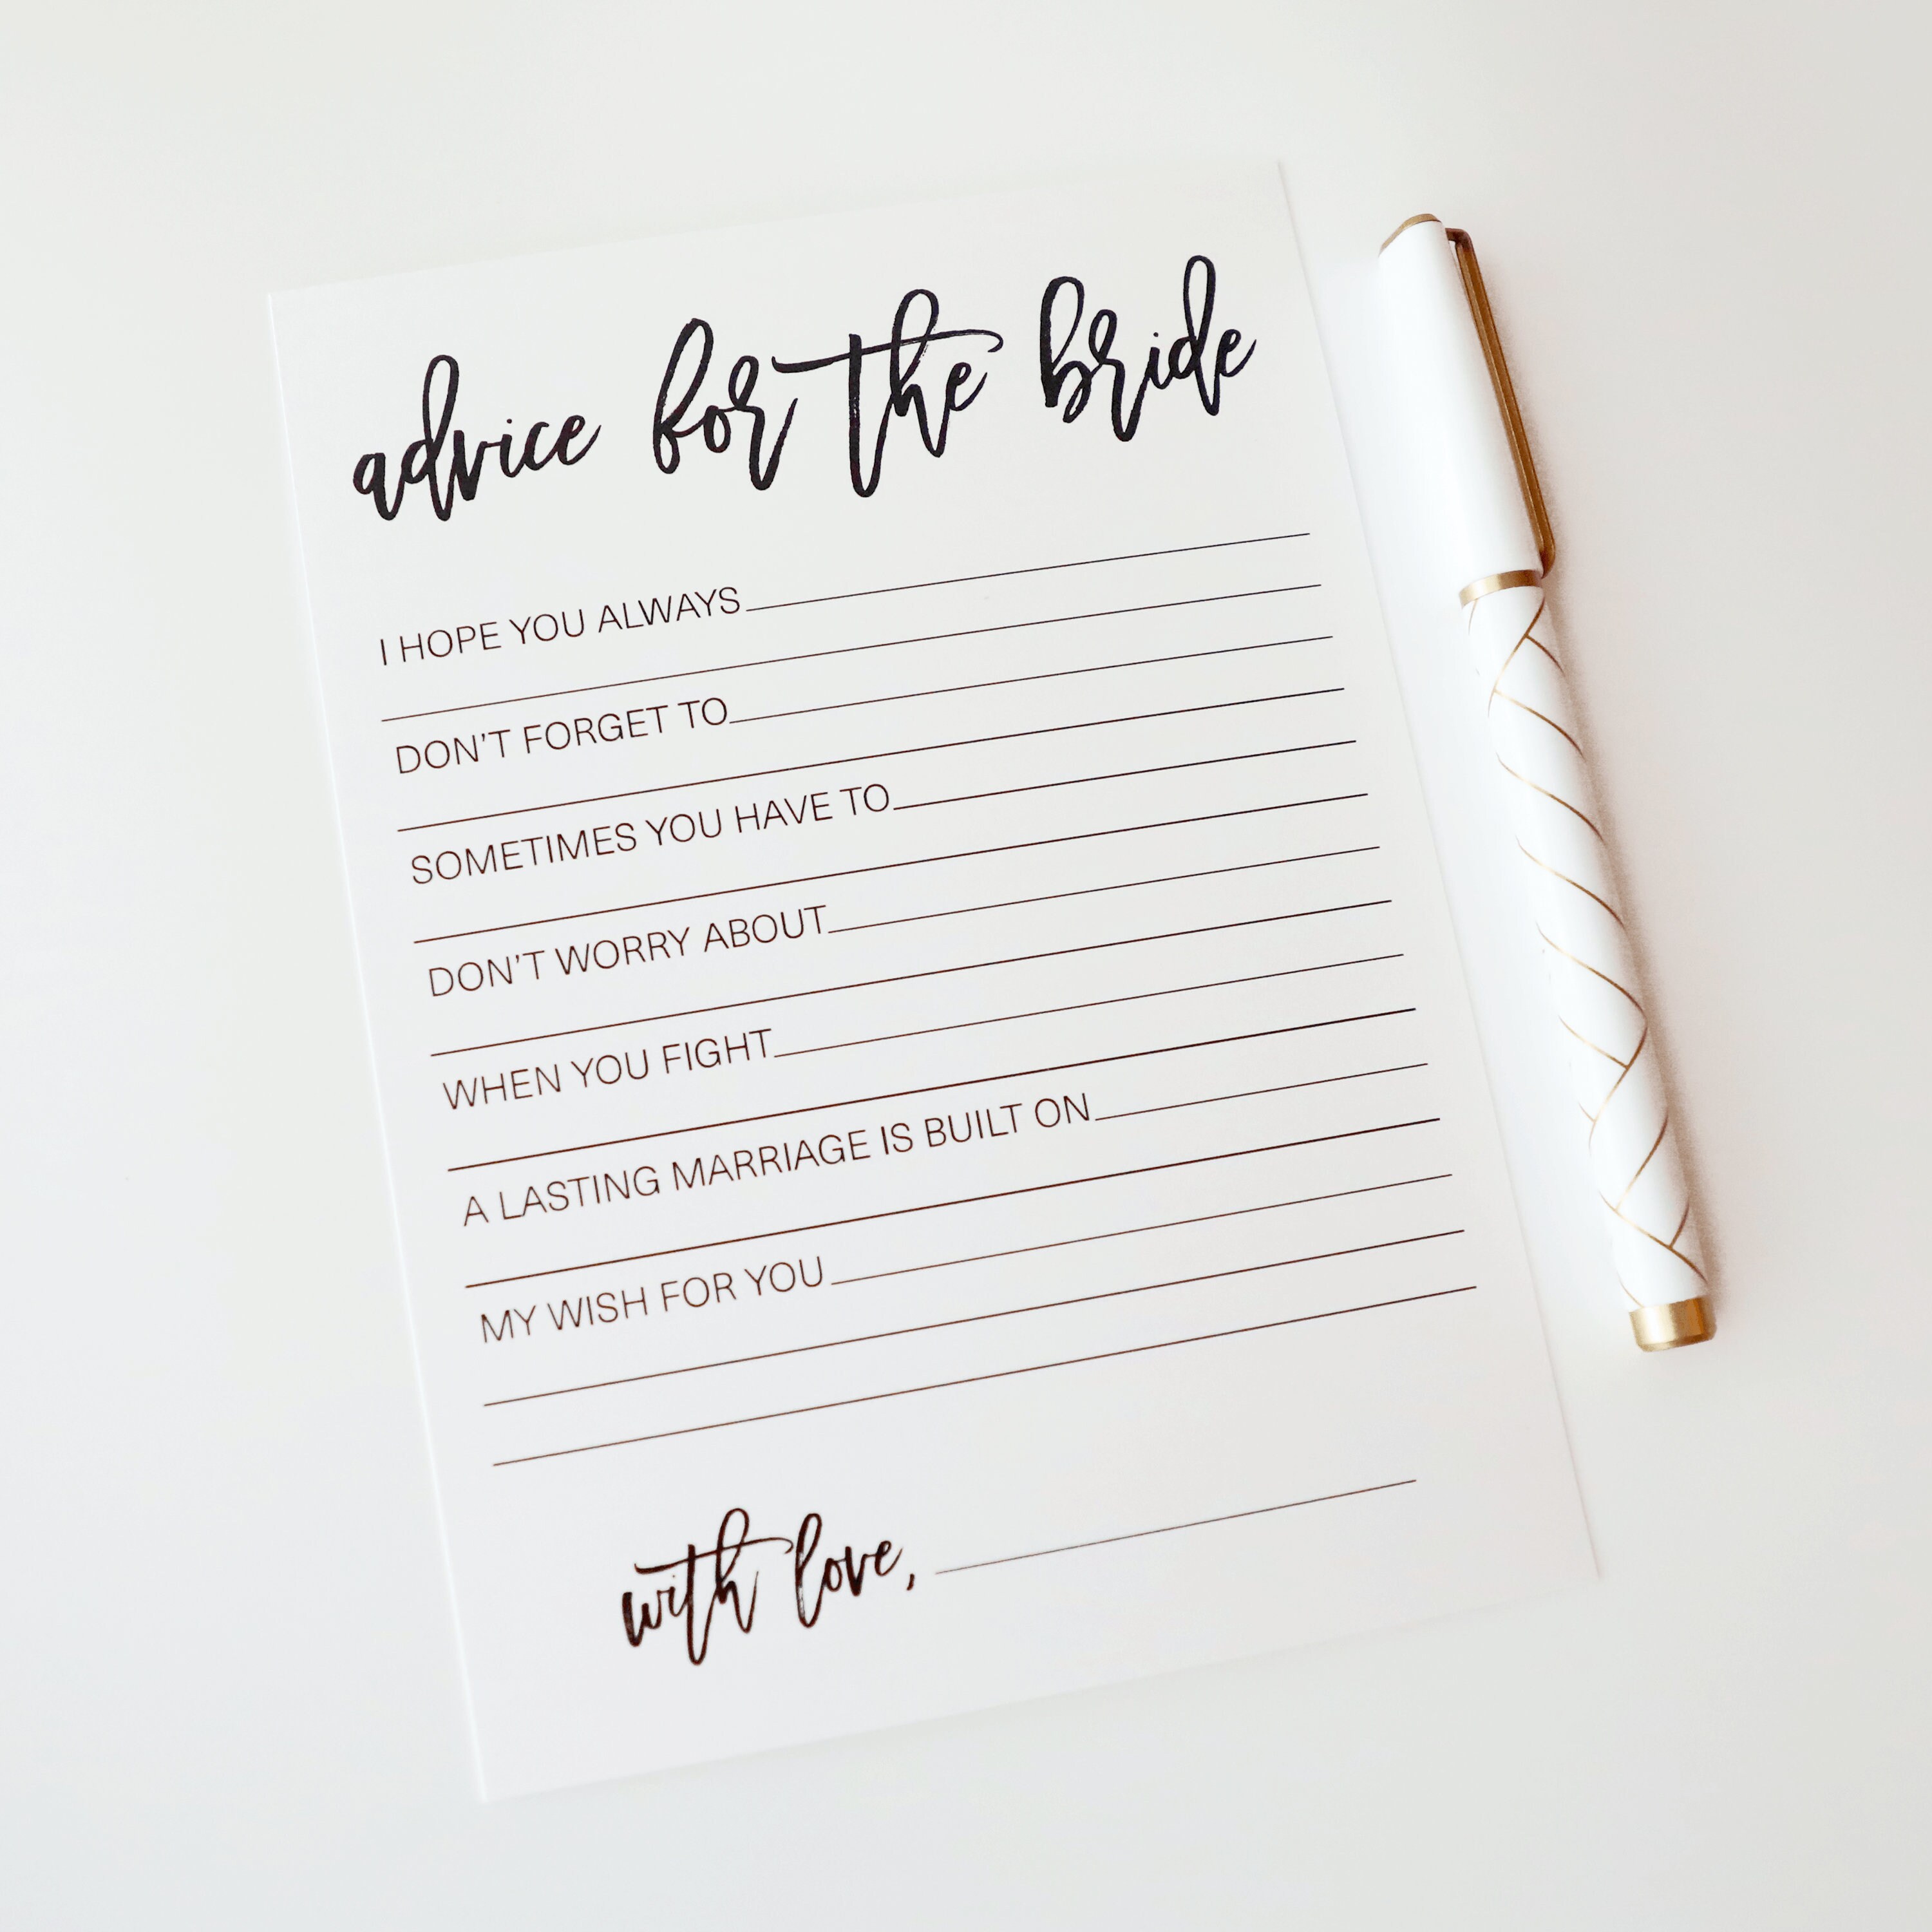 advice for the bride
I HOPE YOU ALWAYS
DON'T FORGET TO
SOMETIMES YOU HAVE TO
DON'T WORRY ABOUT
WHEN YOU FIGHT
A LASTING MARRIAGE IS BUILT ON
MY WISH FOR YOU
with love,